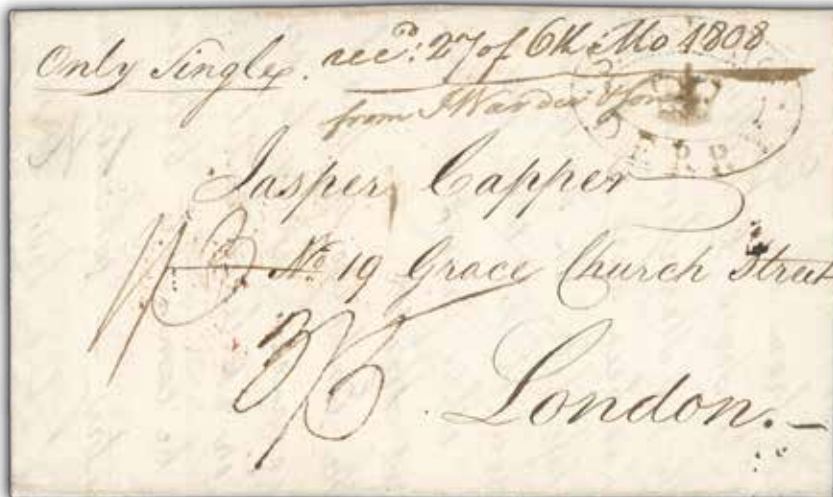 Only Single. recd: 27 of 6th Mo 1808
from J Warder & Son
Jasper Capper
No 19 Grace Church Street
London.—